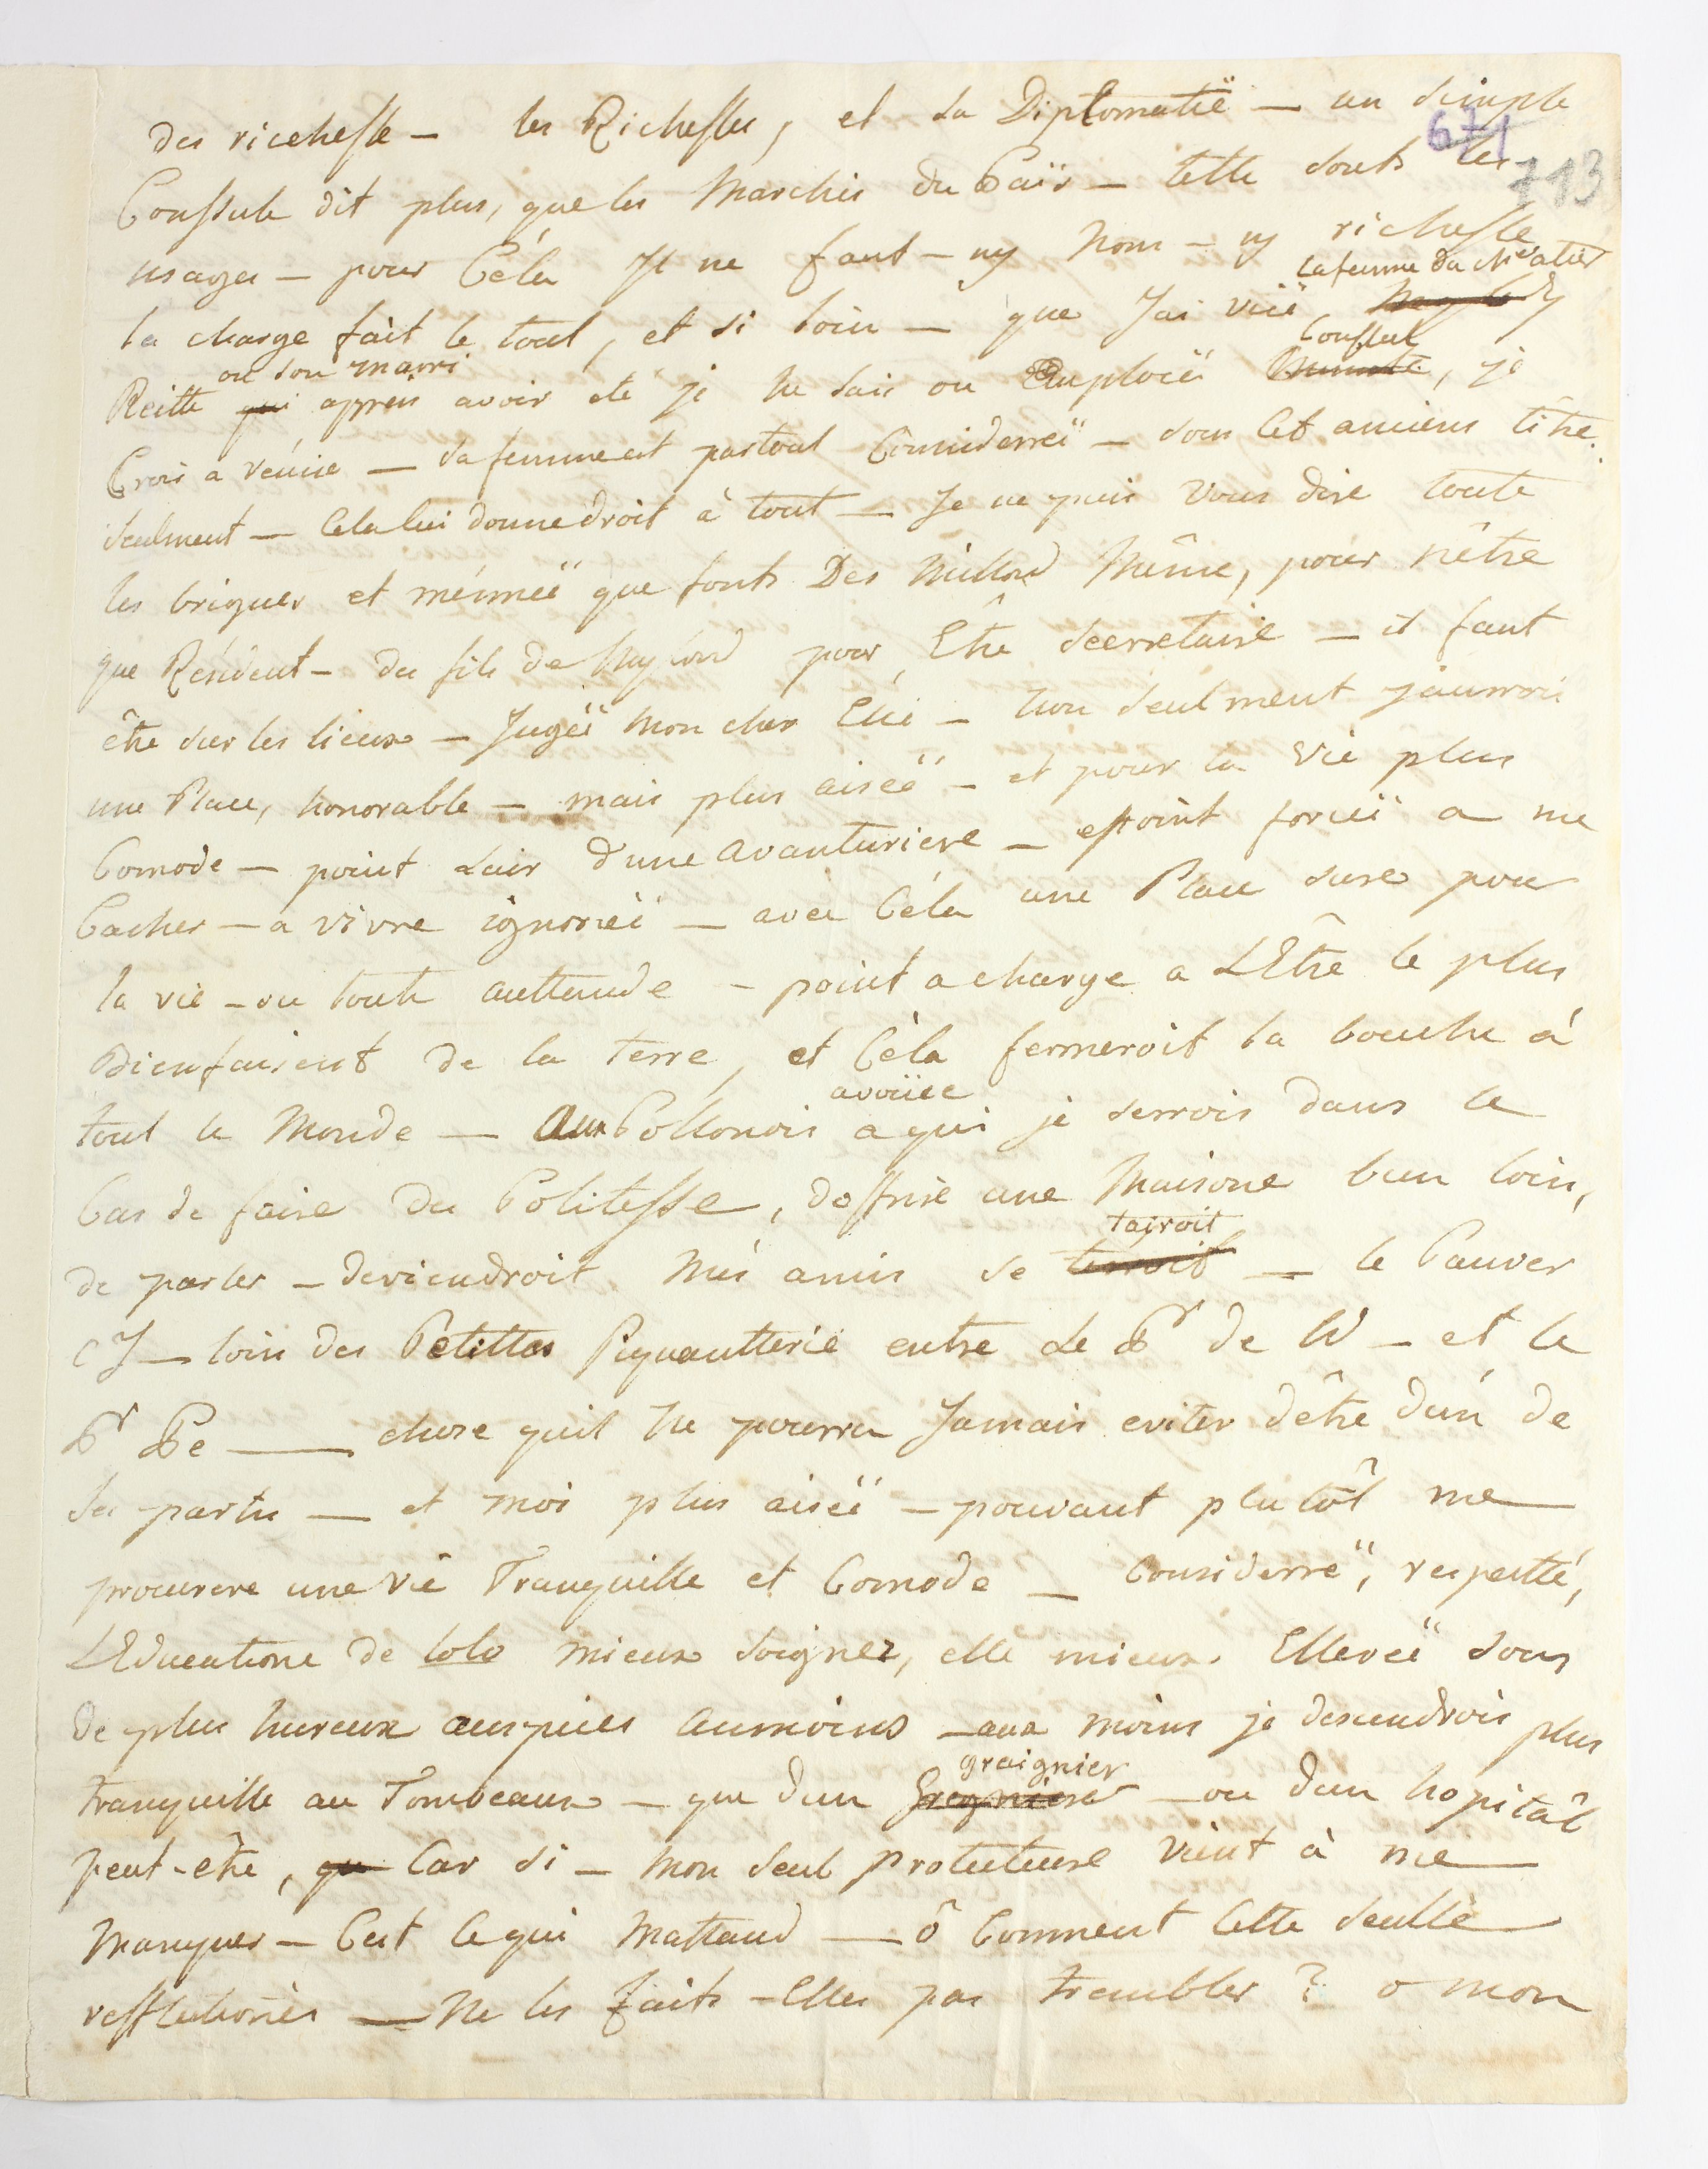 des ricehesse — les Richesses, et la Diplomatie — un simple
671
713
Conssule dit plus, que les Marchis du Païs — telle sonts les
usages — pour Céla Jl ne faut — ny nom — ny richesse
la femme du chevalier
la charge fait le tout, et si loin — que J'ai vüe
ou son marri Conssul
Reitte qui apprens avoir été je ne sais ou Emploiéë Ministre, je
Crois a vénise — sa femme est partout Considerréë — sous Cet anciens titre
seulment — Cela lui donne droit à tout — Je ne puis vous dire toute
les brigues et mêmeë que fonts Des Millord Même, pour nêtre
que Résident — des fils de Mylord pour Être Seerretaire — il faut
être sur les lieux — Jugéë mon cher Elie — non seulment jaurrois
une Place, honorable — mais plus aiséë — et pour la vie plus
Comode — point Lair d'une avanturiere — et point forcéë a me
Cacher — a vivre ignoréë — avec Céla une Place sure pour
la vie — ou toute auttende — point a charge a LEtre le plus
Bienfaisent de la terre, et Cèla fermeroit la bouche à
avoüee
tout le Monde — Aux Pollonois a qui je serrois dans le
Cas de faire des Politesse, doffrire une Maisone bien loin,
tairoit
de parler — deviendroit més amis se terroit — le Pauver
CJ — loin des Petittes Piquautterie entre Le Pr de W — et le
Pr Pe — chose quil ne pourra Jamais eviter d'être dún de
ses partis — et moi plus aiséë — pouvant plutôt me
procurere une vie Tranquille et Comode — Considerréë, respecté,
LEducatione de lolo mieux soignez, elle mieux Elleveë sous
de plus hureux auspices aumoins — aux moins je descendrois plus
graignier
tranquille au Tombeaux — que dun Gregniere — ou dun hopitâl
peut-être, qu Car si — mon seul protecteure vient à me
Manquer — Cest Ce qui Mattand — ô Comment Cette seulle
refflectionès — Ne les faits — Elles pas trembler? o mon